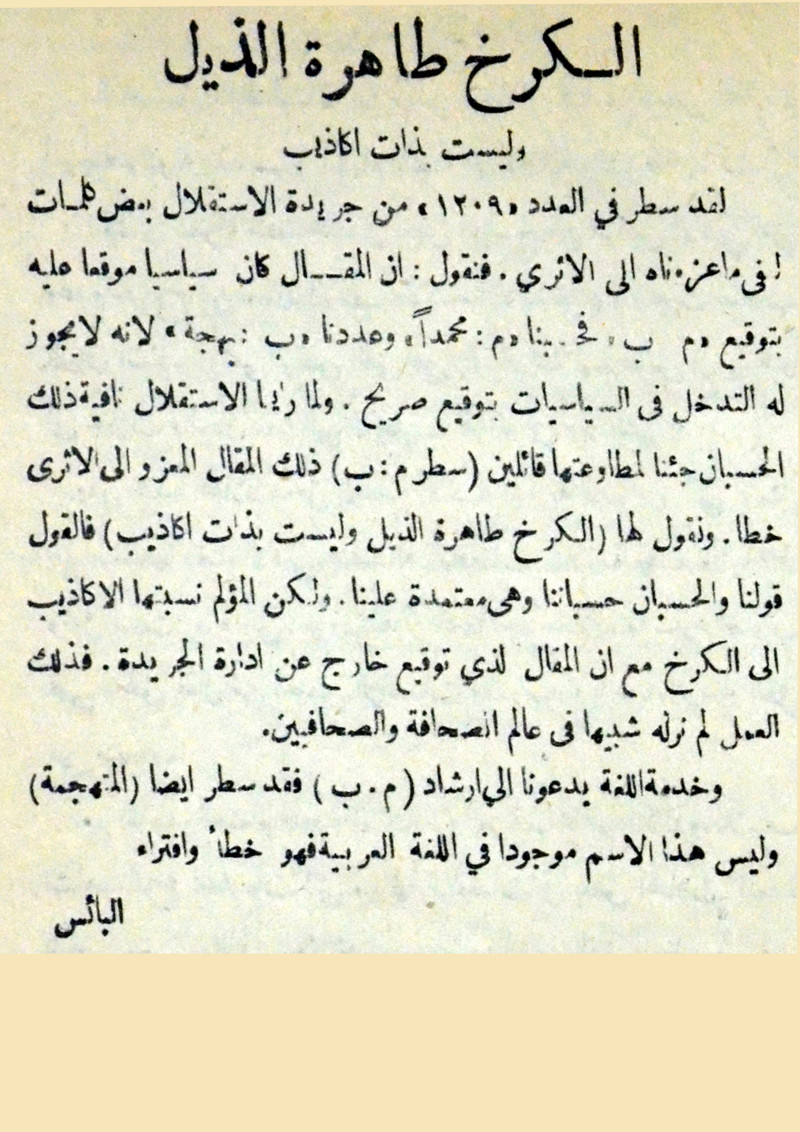 الكرخ طاهرة الذيل
وليست بذات اكاذيب
لقد سطر في العدد «١٢٠٩» من جريدة الاستقلال بعض كلمات
في ماعزوناه الى الاثري . فنقول : ان المقال كان سياسيا موقعا عليه
بتوقيع «م ب» فحسبنا «م : محمداً» وعددنا «ب : بهجة» لانه لايجوز
له التدخل فى السياسيات بتوقيع صريح . ولما راينا الاستقلال نافية ذلك
الحسبان جئنا لمطاوعتها قائلين (سطر م : ب) ذلك المقال المعزو الى الاثرى
خطا . ونقول لها (الكرخ طاهرة الذيل وليست بذات اكاذيب) فالقول
قولنا والحسبان حسباننا وهى معتمدة علينا . ولكن المؤلم نسبتها الاكاذيب
الى الكرخ مع ان المقال لذي توقيع خارج عن ادارة الجريدة . فذلك
العمل لم نر له شبيها فى عالم الصحافة والصحافيين .
وخدمة اللغة يدعونا الى ارشاد ( م . ب ) فقد سطر ايضا (المتهجمة)
وليس هذا الاسم موجودا في اللغة العربية فهو خطأ وافتراء
البائس